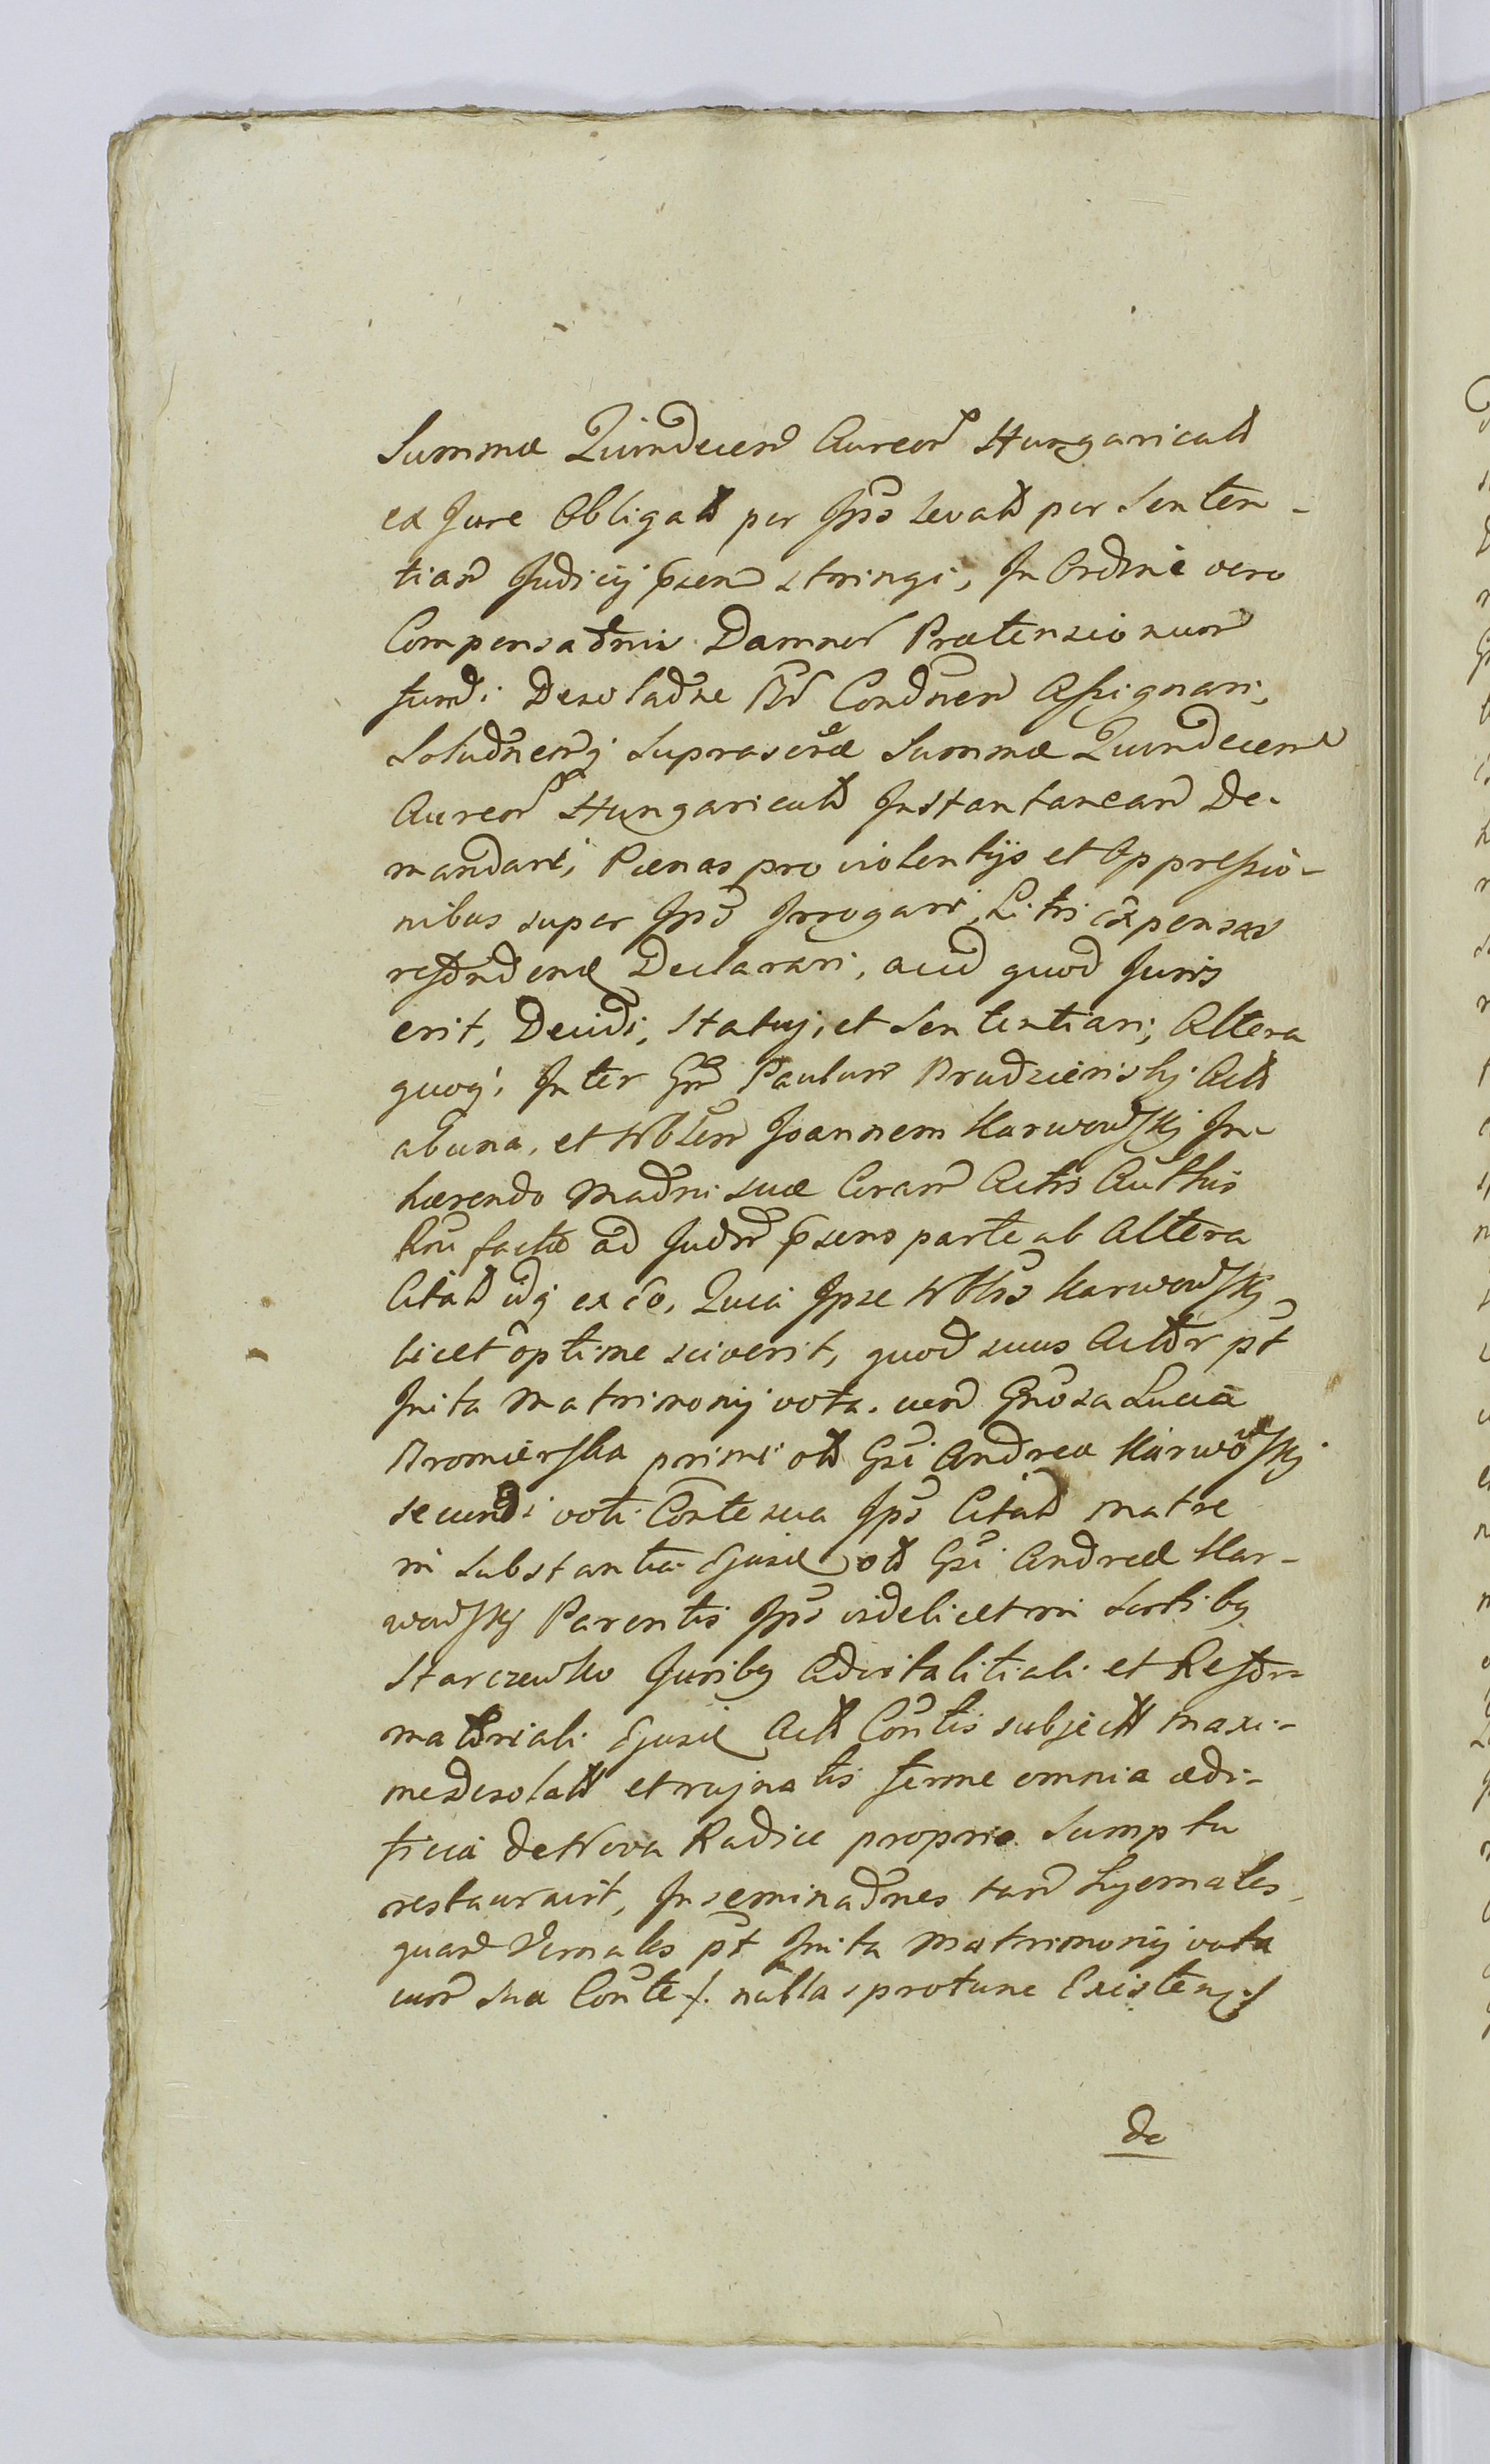 Summæ Quindecem Aureor Hungaricali
ex Jure Obligati per Ipso levati per Senten-
tiam Judicij psen stringi, In Ordine vero
Compensaonis Damnor Prætensionum
fundi Desolaone Condnem Assignari,
Soluonemq supra scrae Summæ Quindecem
Aureor Hungaricali Instantaneam De-
mandari, Pænas pro violentijs et Oppressio-
nibus super Ipso Irrogari, Litis expensas
refundend Declarari, aliud quod Juris
erit, Decidi, Statuj, et Sententiari, Altera
quoq, Inter Gm Paulum Brudzieński Act
ab una, et Nblem Joannem Karwowskj In-
hærendo Madni suæ Coram Actis Authis
facta ad Judm psens parte ab Altera
Citat idq ex eo, Quia Ipse Nblis Karwowskj
licet optime sciverit, quod suus Actor pt
Inita Matrimonij vota cum Gnosa Lucia
Bromierska primi oli Gsi Andreæ Karwowskj
secundi voti Conte sua Ips Citati matre
in Substantia Ejusd oli Gsi Andreæ Kar-
wowskj Parentis Ips videlicet in Sortibq
Starczewko Juribq Advitalitiali et Refor-
matoriali Ejusd Act Contis subject maxi-
me desolat et rujnatis ferme omnia ædi-
ficia de Nova Radice proprio Sumptu
restauravit, Inseminaones tam Hyemales
quam Vernales pt Inita Matrimonij vota
cum sua Conte /. nullas protunc Existen /
de